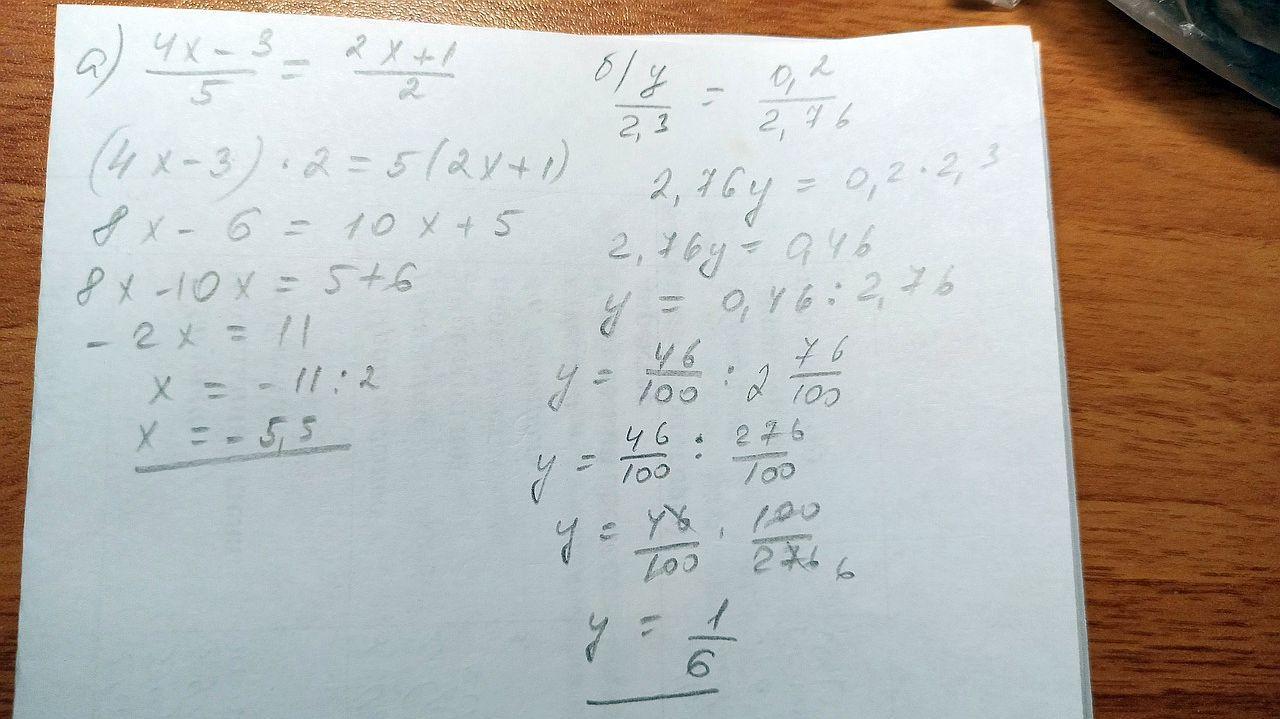 а) (4x - 3)/5 = (2x + 1)/2
(4x - 3) · 2 = 5(2x + 1)
8x - 6 = 10x + 5
8x - 10x = 5 + 6
- 2x = 11
x = - 11 : 2
x = - 5,5
б) y/2,3 = 0,2/2,76
2,76y = 0,2 · 2,3
2,76y = 0,46
y = 0,46 : 2,76
y = 46/100 : 2 76/100
y = 46/100 : 276/100
y = 46/100 · 100/276 6
y = 1/6